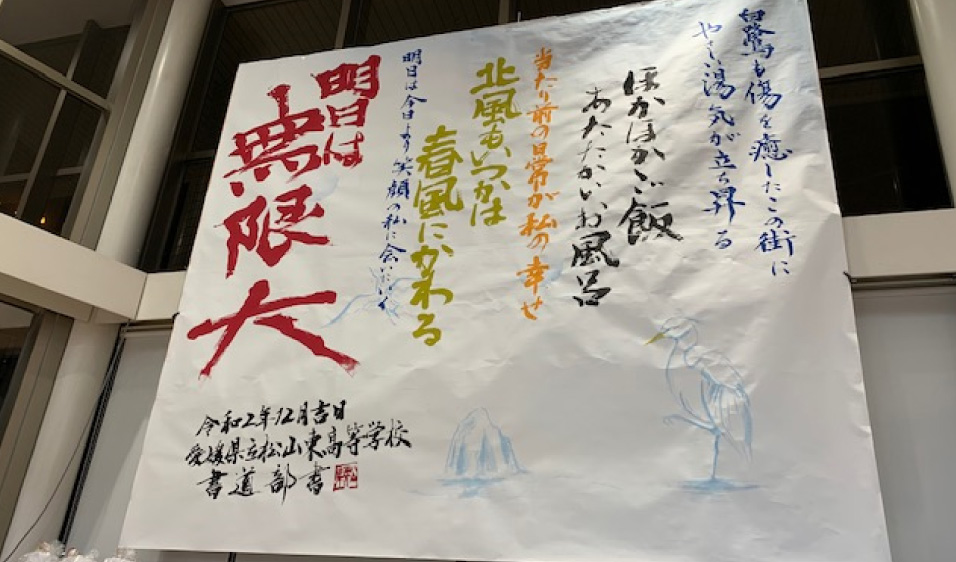 白鷺も傷を癒したこの街に
やさしい湯気が立ち昇る
ほかほかご飯
あたたかいお風呂
当たり前の日常が私の幸せ
北風もいつかは
春風にかわる
明日は今日より笑顔の私に会いにゆく
明日は
無限大
令和2年12月吉日
愛媛県立松山東高等学校
書道部書